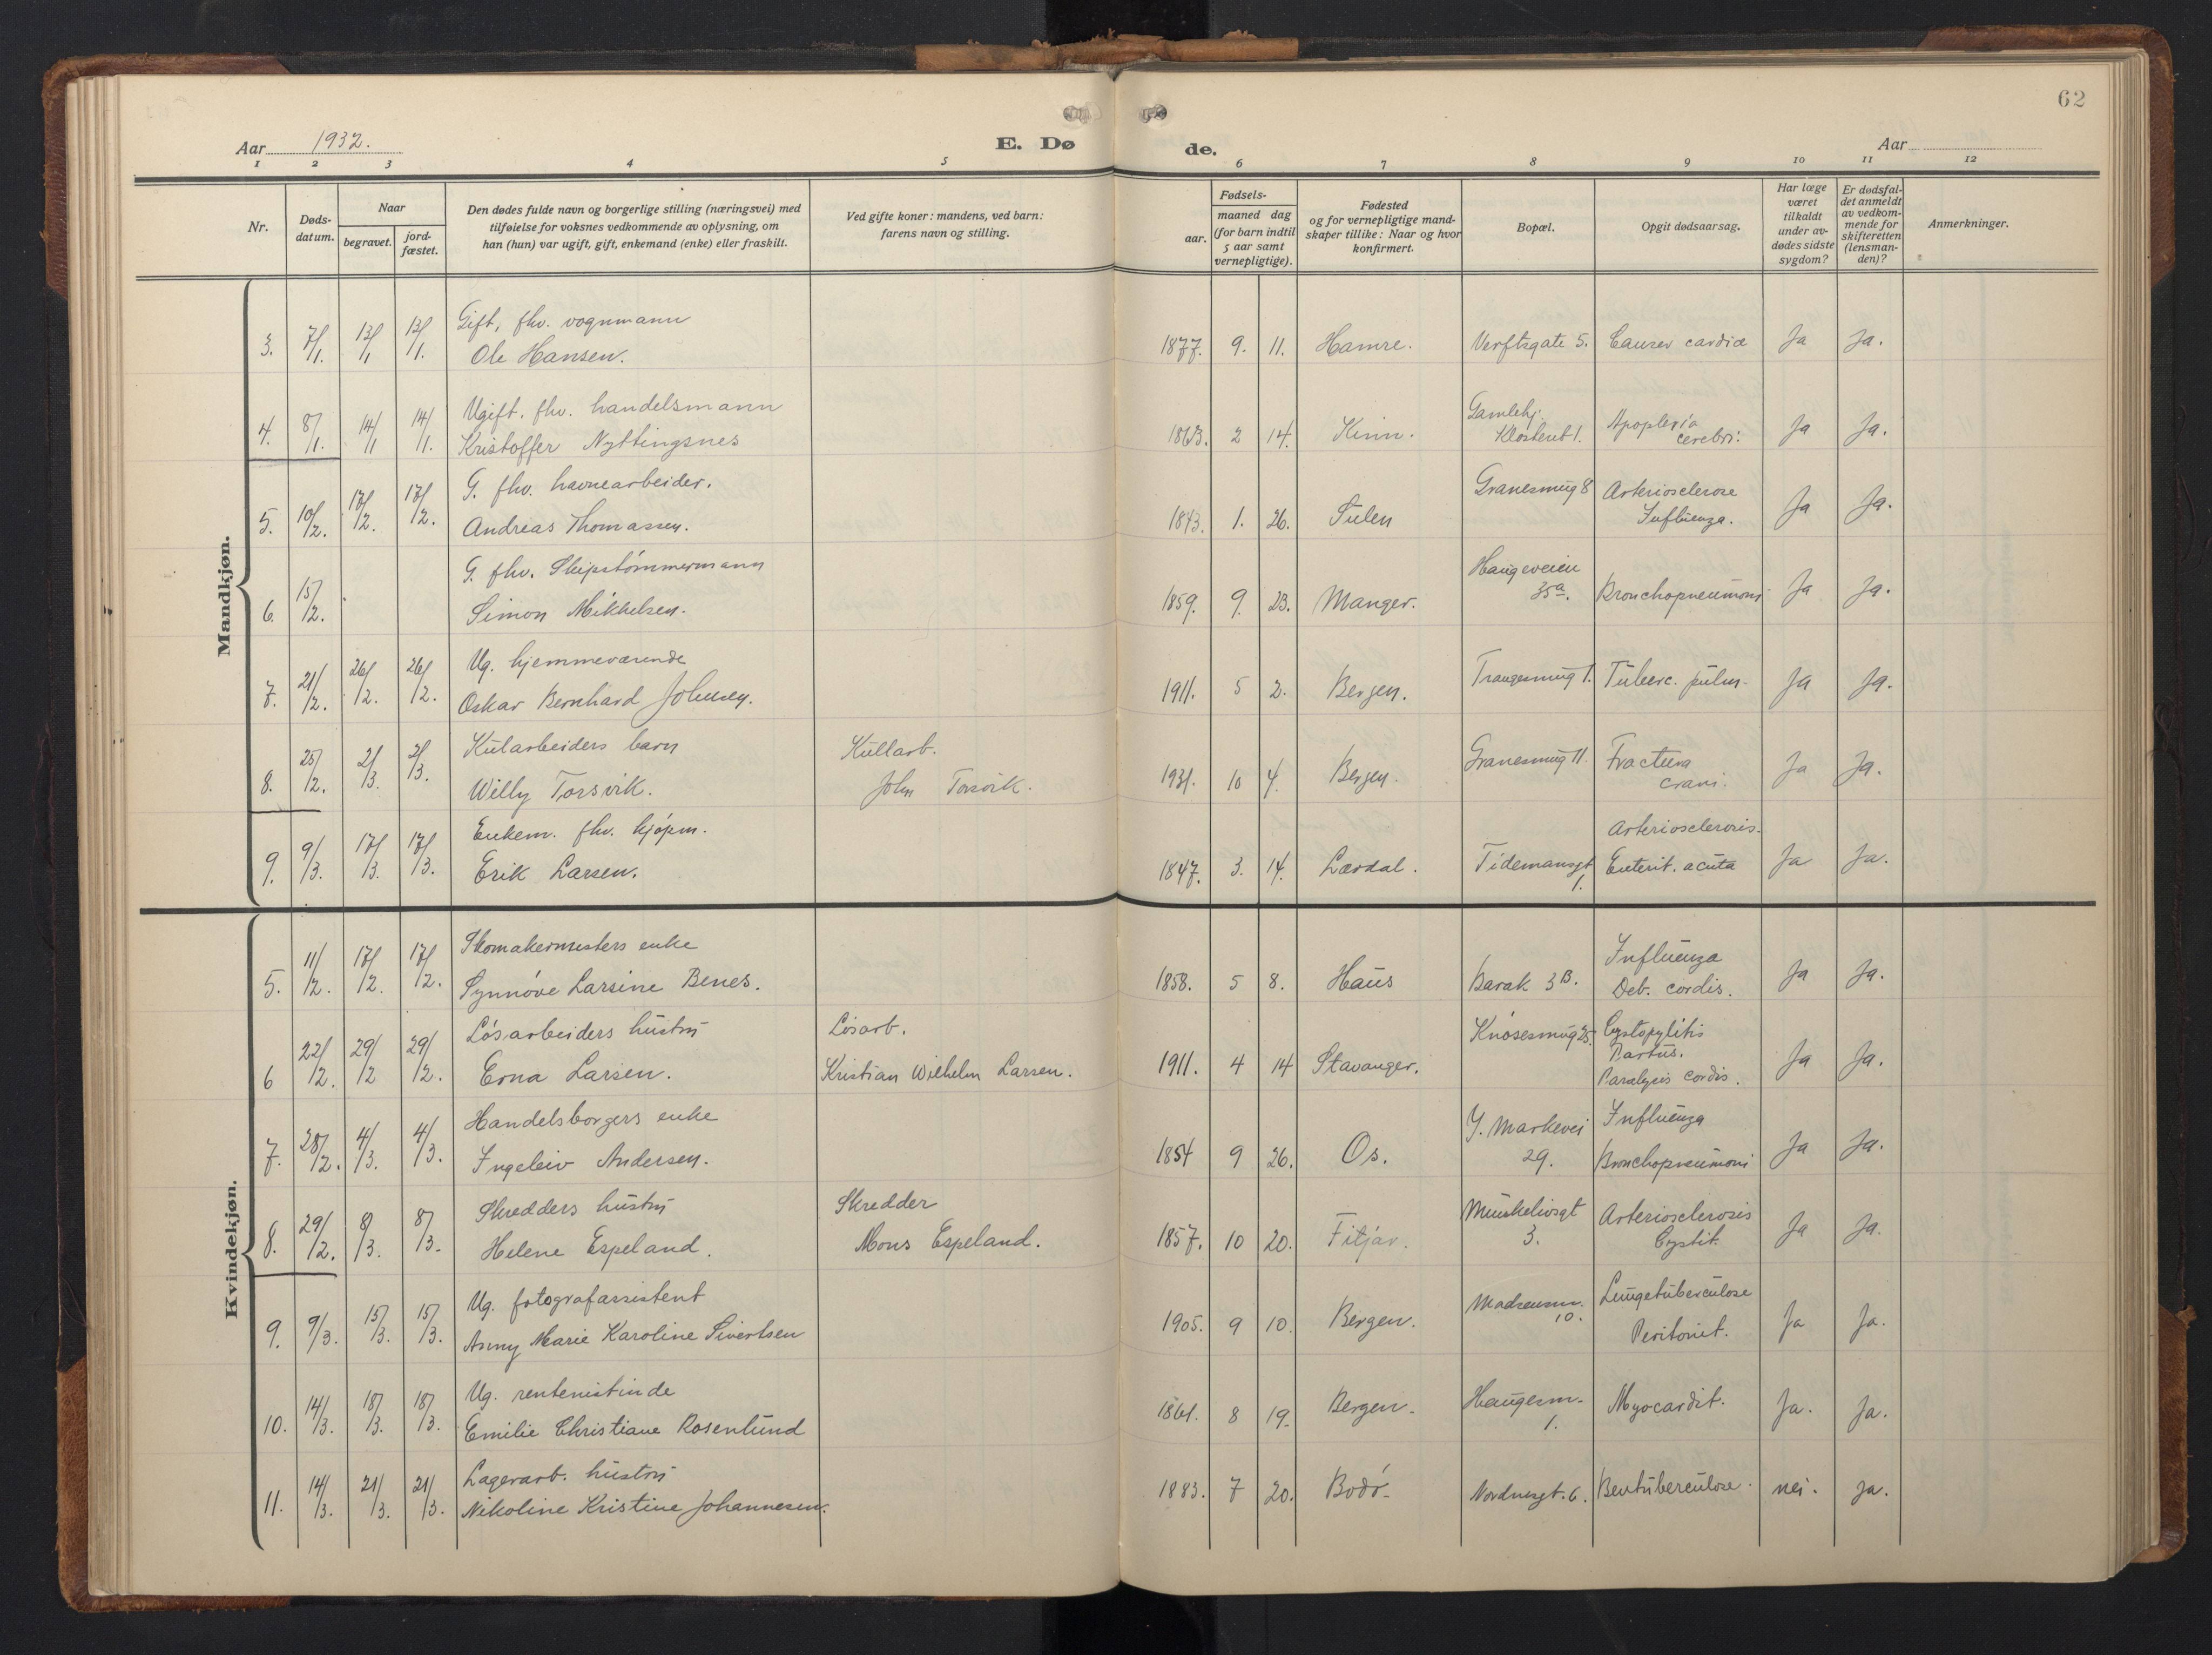 62
Aar 1932.
E. Dø
de.
Aar
1 2 3 4 5 6 7 8 9 10 11 12
Nr.
Døds-
datum.
Naar
begravet.
jord-
fæstet.
Den dødes fulde navn og borgerlige stilling (næringsvei) med
tilføielse for voksnes vedkommende av oplysning, om
han (hun) var ugift, gift, enkemand (enke) eller fraskilt.
Ved gifte koner: mandens, ved barn:
farens navn og stilling.
Fødsels-
aar.
maaned dag
(for barn indtil
5 aar samt
vernepligtige).
Fødested
og for vernepligtige mand-
skaper tillike: Naar og hvor
konfirmert.
Bopæl.
Opgit dødsaarsag.
Har læge
været
tilkaldt
under av-
dødes sidste
sygdom?
Er dødsfal-
det anmeldt
av vedkom-
mende for
skifteretten
(lensman-
den)?
Anmerkninger.
Mandkjøn.
Gift, fhv. vognmann
3. 7/1. 13/1 13/1. Ole Hansen. 1877. 9. 11. Hamre. Verftsgate 5. Cancer cardiæ Ja Ja.
Ugift. fhv. handelsmann Gamlehj.
4. 8/1. 14/1 14/1. Kristoffer Nyttingsnes 1863. 2 14. Kinn. Klosteret 1. Apoplexia cerebri. Ja Ja.
G. fhv. havnearbeider. Granesmug 8 Arteriosclerose
5. 10/2. 17/2. 17/2. Andreas Thomassen. 1843. 1. 26. Sulen Influenza. Ja Ja.
G. fhv. Skipstømmermann Haugeveien
6. 15/2. Simon Mikkelsen. 1859. 9. 23. Manger. 35a. Bronchopneumoni Ja Ja.
Ug. hjemmeværende
7. 21/2. 26/2. 26/2. Oskar Bernhard Johnsen. 1911. 5 2. Bergen. Trangesmug 1. Tuberc. pulm. Ja Ja.
Kularbeiders barn Kullarb. Granesmug 11. Fractura
8. 25/2. 2/3. 2/3. Willy Torsvik. John Torsvik. 1931. 10 4. Bergen. crani. Ja Ja.
Enkem. fhv. kjøpm. Arteriosclerosis.
9. 9/3. 17/3. 17/3. Erik Larsen. 1847. 3. 14. Lærdal. Tidemansgt 1. Enterit. acuta Ja Ja.
Kvindekjøn.
Skomakermesters enke Influenza
5. 11/2. 17/2. 17/2. Synnøve Larsine Benes. 1858. 5 8. Haus Barak 3B. Deb. cordis. Ja Ja.
Løsarbeiders hustru Løsarb. Knøsesmug 25. Cystopylitis
Partus.
6 22/2. 29/2 29/2. Erna Larsen. Kristian Wilhelm Larsen. 1911. 4 14 Stavanger. Paralysis cordis. Ja Ja.
Handelsborgers enke Y. Markevei Influenza
7. 28/2. 4/3. 4/3. Ingeleiv Andersen. 1854 9 26. Os. 29. Bronchopneumoni Ja Ja.
Skredders hustru Skredder Munkelivsgt Arteriosclerosis
8. 29/2. 8/3. 8/3. Helene Espeland. Mons Espeland. 1857. 10 20. Fitjar. 3. Cystit. Ja Ja.
Ug. fotografassistent Madsensm. Lungetuberculose
9. 9/3. 15/3. 15/3. Anny Marie Karoline Sivertsen 1905. 9 10. Bergen. 10. Peritonit. Ja Ja.
Ug. rentenistinde Haugesm.
10. 14/3. 18/3. 18/3. Emilie Christiane Rosenlund 1861. 8 19. Bergen. 1. Myocardit. Ja. Ja.
Lagerarb. hustru
11. 14/3. 21/3. 21/3. Nikoline Kristine Johannesen. 1883. 7 20. Bodø. Nordnesgt. 6. Bentuberculose. nei. Ja.